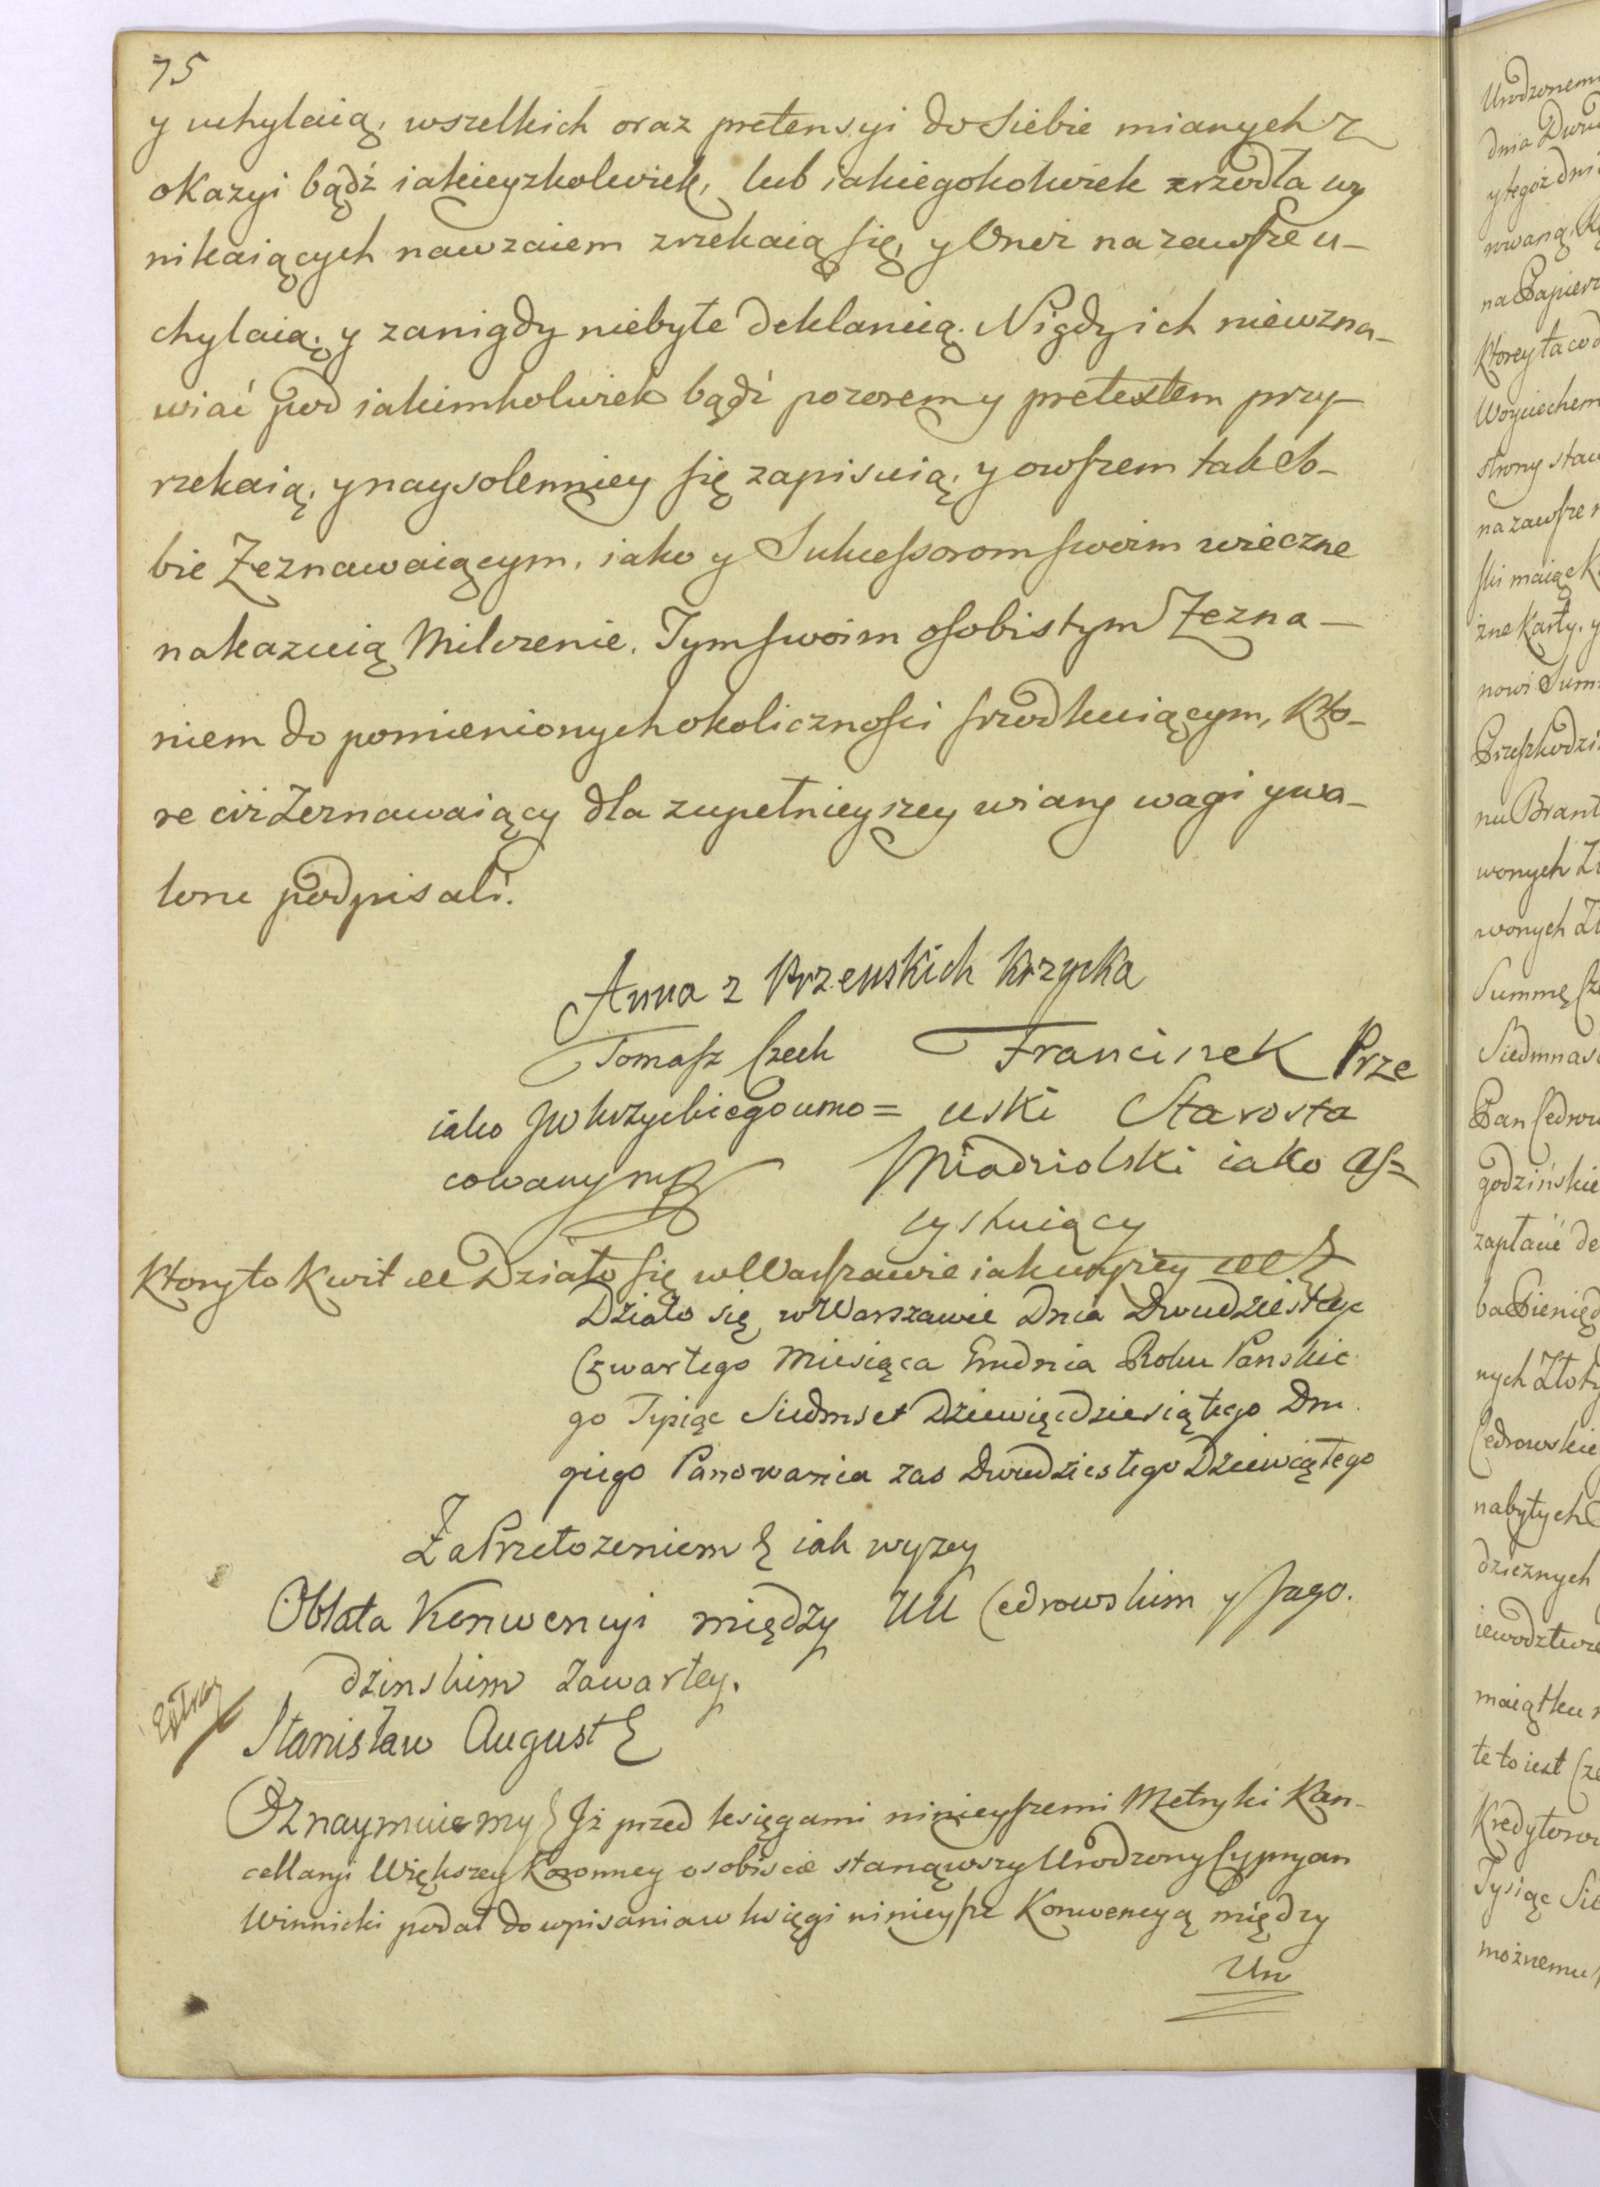 75
y uchylaią, wszelkich oraz pretensyi do siebie mianych z
okazyi bądź iakieyzkolwiek, lub iakiegokolwiek zrzodła wy
nikaiących nawzaiem zrzekaią się, y Onez na zawsze u-
chylaią, y zanigdy niebyłe deklaruią. Nigdy ich niewzna-
wiać pod iakimkolwiek bądź pozorem y pretextem przy-
rzekaią, y naysolenniey się zapisuią, y owszem tak So-
bie Zeznawaiącym, iako y Sukcessorom swoim wieczne
nakazuią Milczenie. Tym swoim osobistym Zezna-
niem do pomienionych okoliczności srzodkuiącym, Kto-
re ciż Zeznawaiący dla zupełnieyszey wiary wagi y wa-
loru podpisali.
Anna z Przeuskich Krzycka
Tomasz Czech
iako JW Krzyckiego umo=
cowany mp
Franciszek Prze
uski Starosta
Miadziolski iako as=
systuiący
Ktory to Kwit Działo się w Warszawie iak wyżey
Działo się w Warszawie Dnia Dwudziestego
Czwartego Miesiąca Grudnia Roku Panskie
go Tysiąc Siedmset Dziewięćdziesiątego Dru
giego Panowania zas Dwudziestego Dziewiątego
Za Przełozeniem iak wyzey
Oblata Konwencyi między UU Cedrowskim y Jago.
dzinskim zawartey.
Stanisław August
Oznaymuiemy Iż przed księgami ninieyszemi Metryki Kan-
cellaryi Większey Koronney osobiscie stanąwszy Urodzony Cypryan
Winnicki podał do wpisania w księgi ninieysze Konwencyą między
Ur
Urodzonemi
dnia Dwu
y tegoż dni
na Papierz
Ktorey ta co d
Woyciechem
strony staw
na zawsze
ski maiąc K
zne Karty, y
nowi Summ
Przeszkodzi
nu Brant
wonych Z
wonych Zł
Summę Cz
Siedmnas
Pan Cedrow
godzińskie
zapłacić de
ba Pienięd
nych Złoty
Cedrowskie
nabytych
dzicznych
iewodztwie
maiątku
te to iest Cz
Kredytorow
Tysiąc Sie
możnemu